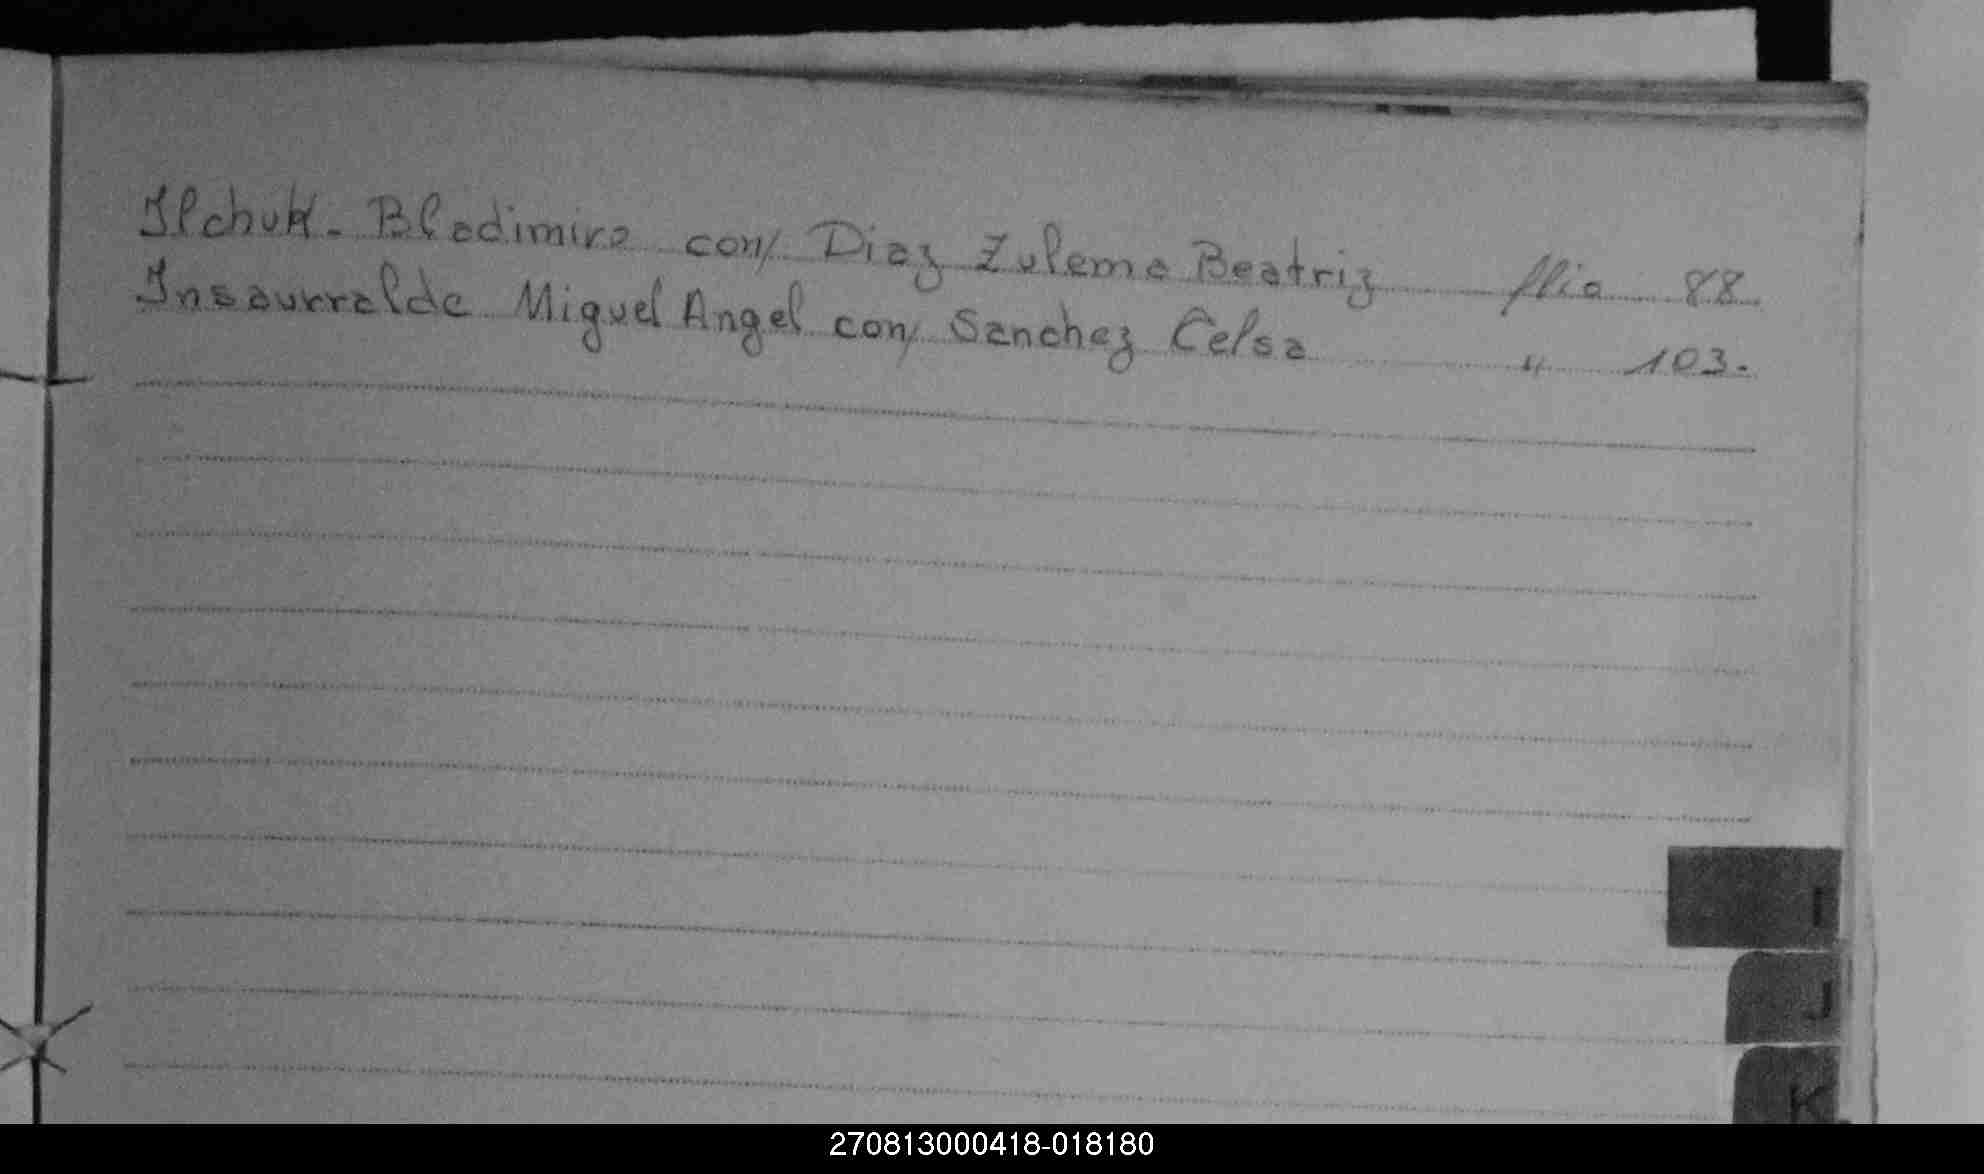 Ilchuk. Bladimiro con/ Diaz Zulema Beatriz flio 88.
Insaurralde Miguel Angel con/ Sanchez Celsa " 103.
I
J
K
270813000418-018180